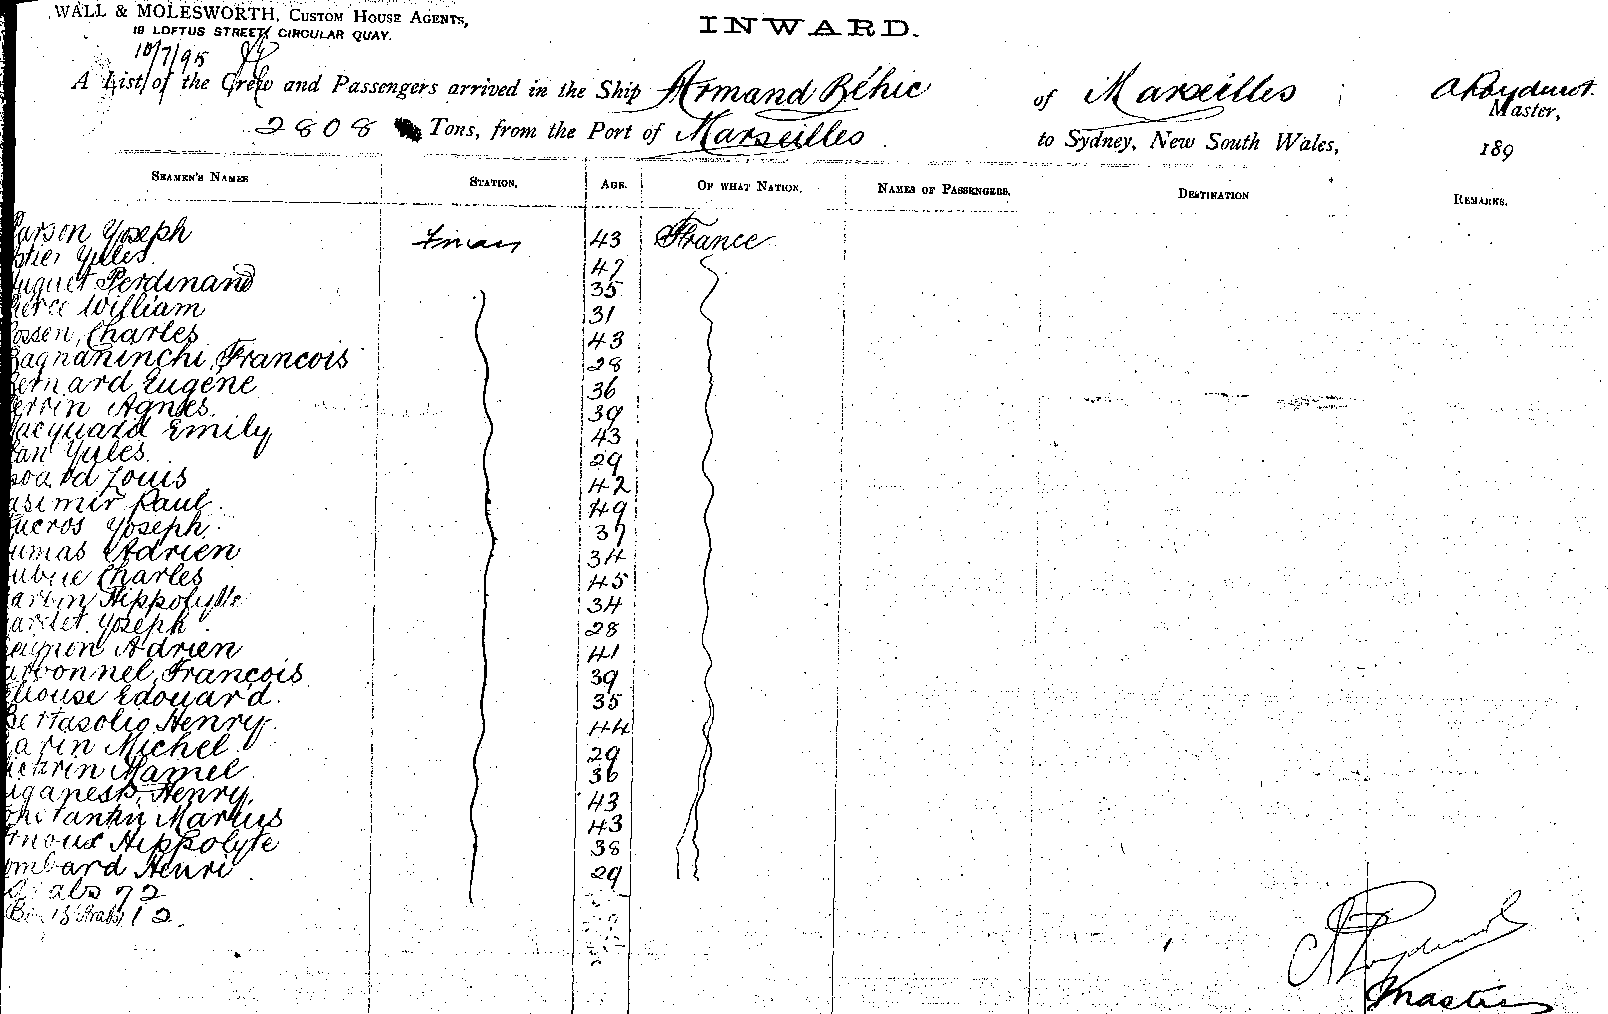 WALL & MOLESWORTH, CUSTOM HOUSE AGENTS,
19 LOFTUS STREET, CIRCULAR QUAY.
INWARD.
10/7/95
A List of the Crew and Passengers arrived in the Ship Armand Béhic of Marseilles
Master,
2808 Tons, from the Port of Marseilles to Sydney, New South Wales, 189
SEAMEN'S NAMES STATION. AGE. OF WHAT NATION. NAMES OF PASSENGERS. DESTINATION REMARKS.
arson Yoseph 43 France
Yules 47
uguet Ferdinand 35
ierce William 31
ossen, Charles 43
Bagnaninchi Francois 28
Bernard Eugene 36
errin Agnes 39
acquard Emily 43
an Yules 29
Louis 42
asimir Paul 49
ucros Yoseph 37
umas Adrien 34
Charles 45
artin Hippolytte 34
Yoseph 28
Adrien 41
arbonnel Francois 39
elouse Edouard 35
Bertasolio Henry 44
arin Michel 29
Mamel 36
Henry 43
Marius 43
rnoux Hippolyte 38
ombard Henri 29
72
12
Master